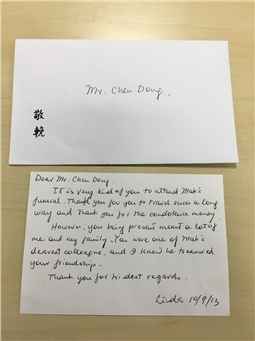 Mr. Chen Dong.
敬
輓
Dear Mr. Chen Dong.
It is very kind of you to attend Mak's
funeral. Thank you for you to travel such a long
way and thank you for the condolence money.
However, you being present meant a lot of
me and my family. You were one of Mak's
dearest colleague, and I know he treasured
your friendship.
Thank you for kindest regards.
Linda 10/9/13